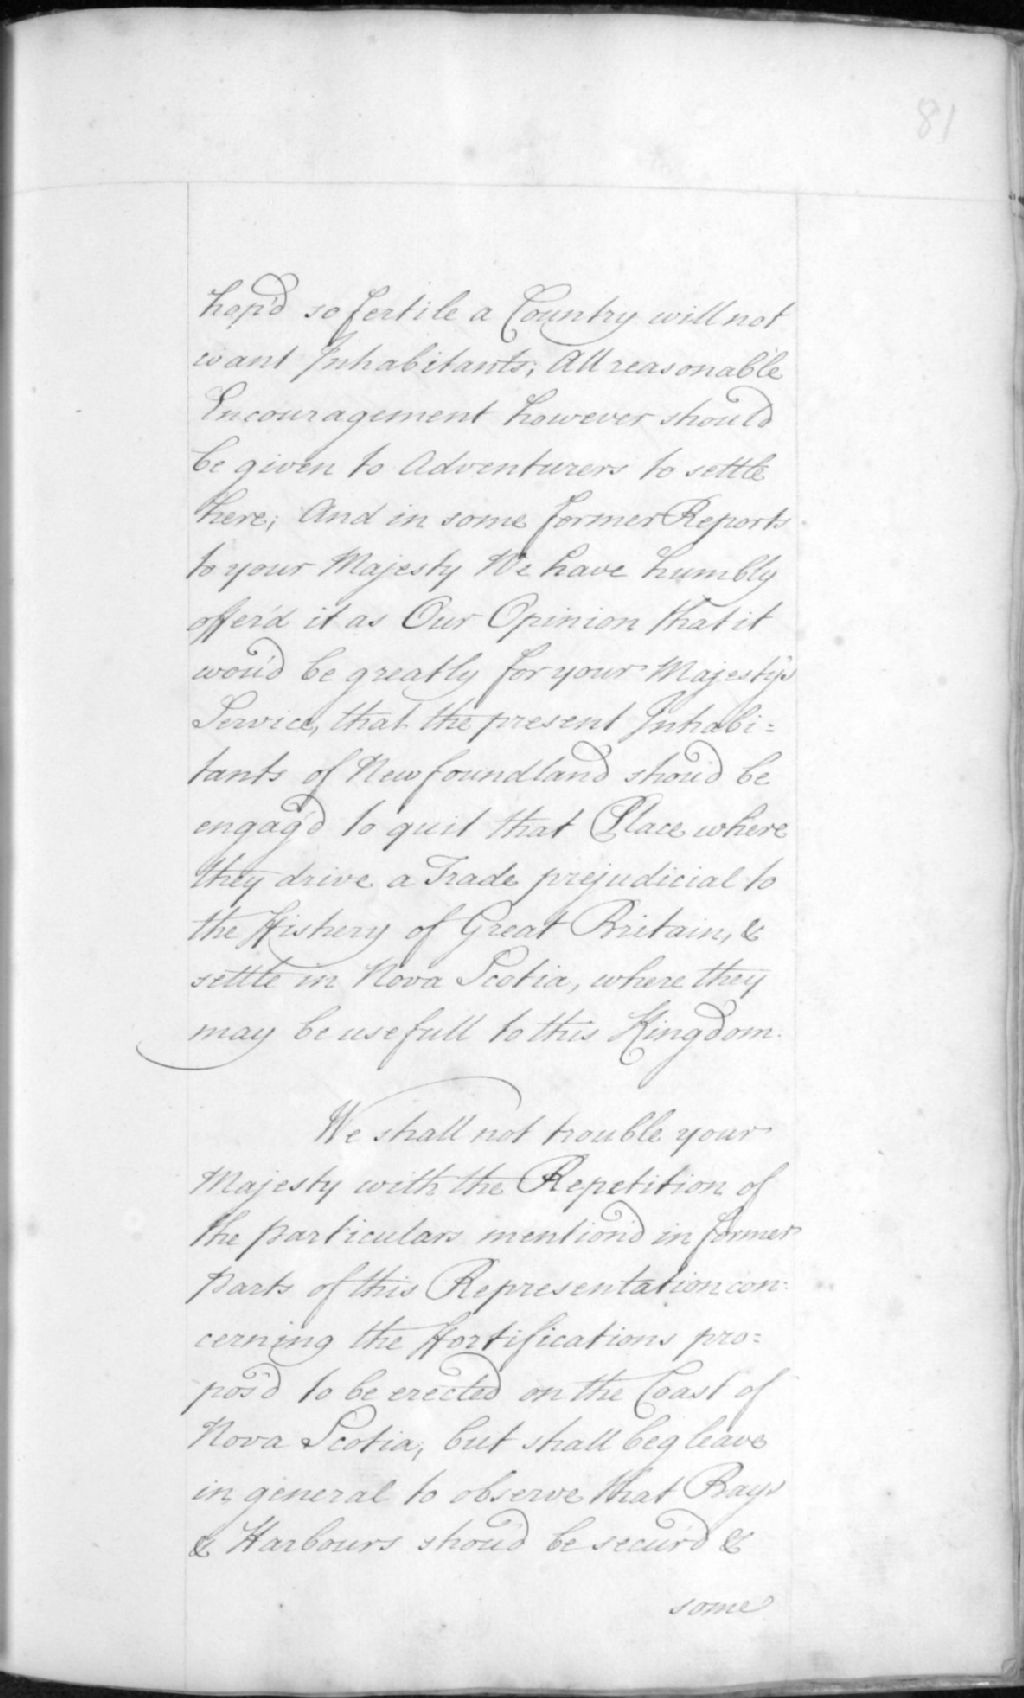 81
hop'd so fertile a Country will not
want Inhabitants; All reasonable
Encouragement however should
be given to Adventurers to settle
here; And in some former Reports
to your Majesty We have humbly
offer'd it as Our Opinion that it
wou'd be greatly for your Majesty's
Service, that the present Inhabi=
tants of Newfoundland shou'd be
engag'd to quit that Place where
they drive a Trade prejudicial to
the ffishery of Great Britain, &
settle in Nova Scotia, where they
may be usefull to this Kingdom.
We shall not trouble your
Majesty with the Repetition of
the particulars mention'd in former
parts of this Representation con=
cerning the ffortifications pro=
pos'd to be erected on the Coast of
Nova Scotia, but shall beg leave
in general to observe that Bays
& Harbours shou'd be secur'd &
some